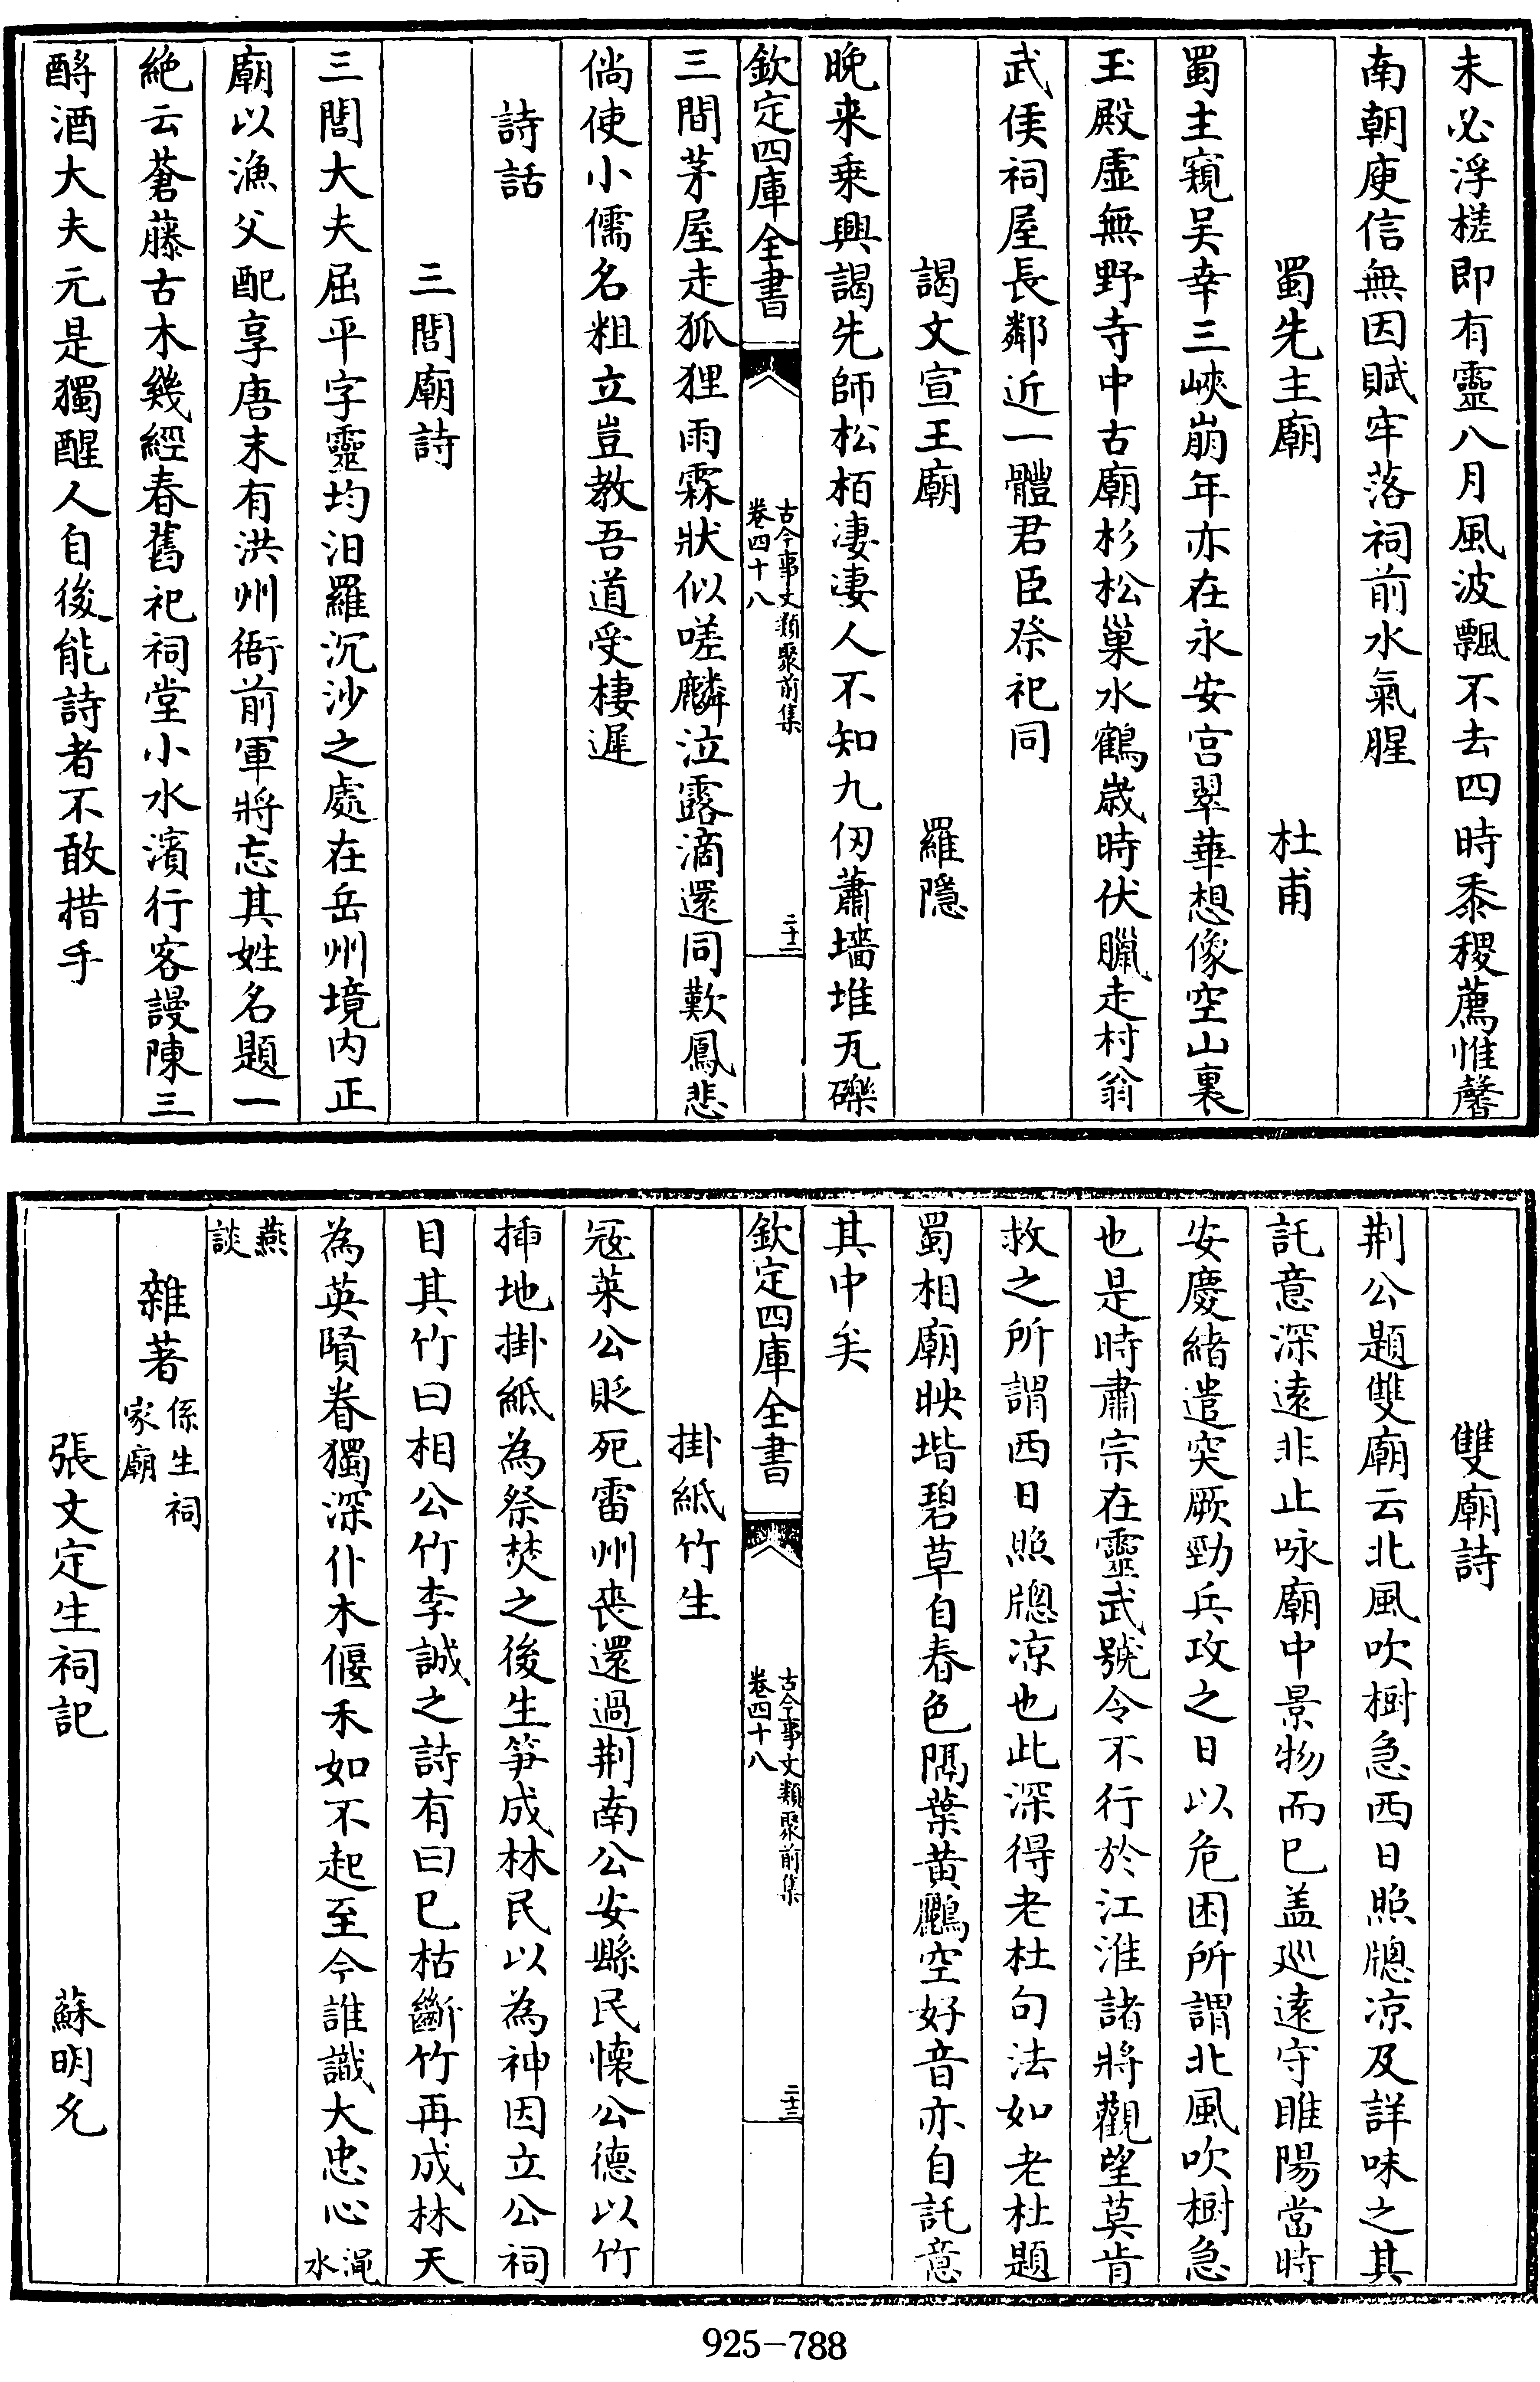 未必浮槎即有靈八月風波飄不去四時黍稷薦惟馨
南朝庾信無因賦牢落祠前水氣腥
蜀先主廟 杜甫
蜀主窺吴幸三峽崩年亦在永安宫翠華想像空山裏
玉殿虚無野寺中古廟杉松巢水鶴歳時伏臘走村翁
武侯祠屋長鄰近一體君臣祭祀同
謁文宣王廟 羅隱
晚来乗興謁先師松栢凄凄人不知九仭蕭墻堆瓦礫
欽定四庫全書 古今事文類聚前集 卷四十八 二十二
三間茅屋走狐狸雨霖狀似嗟麟泣露滴還同歎鳳悲
倘使小儒名粗立豈教吾道受棲遲
詩話
三閭廟詩
三閭大夫屈平字靈均汨羅沉沙之處在岳州境内正
廟以漁父配享唐末有洪州衙前軍將忘其姓名題一
絶云蒼藤古木幾經春舊祀祠堂小水濱行客謾陳三
酹酒大夫元是獨醒人自後能詩者不敢措手
雙廟詩
荆公題雙廟云北風吹樹急西日照牕凉及詳味之其
託意深逺非止咏廟中景物而已盖廵逺守睢陽當時
安慶緒遣突厥勁兵攻之日以危困所謂北風吹樹急
也是時肅宗在靈武號令不行於江淮諸將觀望莫肯
救之所謂西日照牕凉也此深得老杜句法如老杜題
蜀相廟映堦碧草自春色隔葉黄鸝空好音亦自託意
其中矣
欽定四庫全書 古今事文類聚前集 卷四十八 二十三
掛紙竹生
冦莱公貶死雷州喪還過荆南公安縣民懐公德以竹
挿地掛紙為祭焚之後生笋成林民以為神因立公祠
目其竹曰相公竹李誠之詩有曰已枯斷竹再成林天
為英賢眷獨深仆木偃禾如不起至今誰識大忠心 澠水
燕談
雜著 係生祠家廟
張文定生祠記 蘇明允
925-788